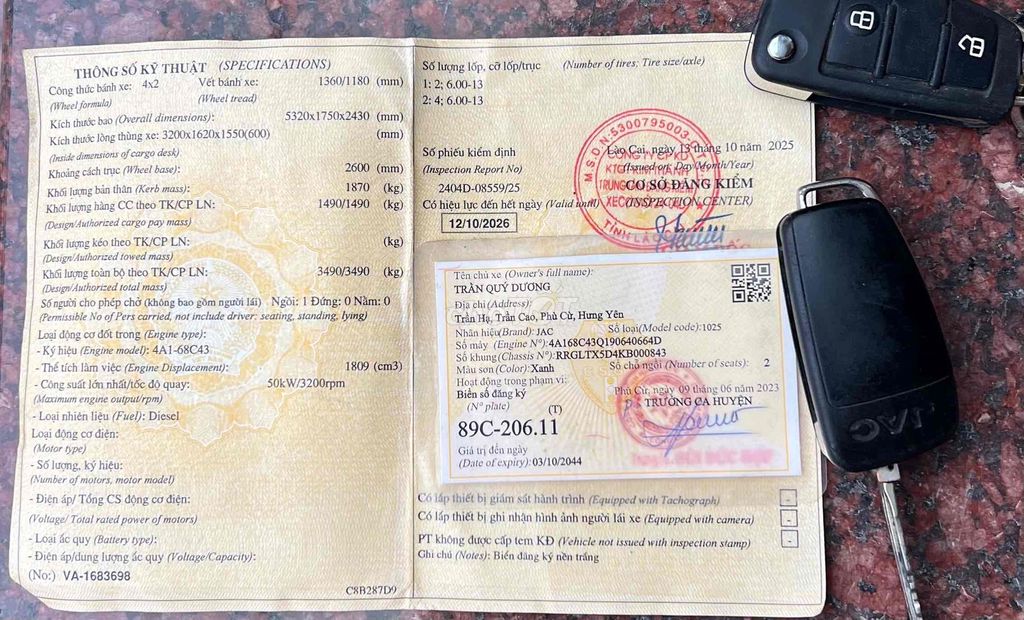 THÔNG SỐ KỸ THUẬT (SPECIFICATIONS)
Công thức bánh xe: 4x2 Vết bánh xe: 1360/1180 (mm)
(Wheel formula) (Wheel tread)
Kích thước bao (Overall dimensions): 5320x1750x2430 (mm)
Kích thước lòng thùng xe: 3200x1620x1550(600) (mm)
(Inside dimensions of cargo desk)
Khoảng cách trục (Wheel base): 2600 (mm)
Khối lượng bản thân (Kerb mass): 1870 (kg)
Khối lượng hàng CC theo TK/CP LN: 1490/1490 (kg)
(Design/Authorized cargo pay mass)
Khối lượng kéo theo TK/CP LN: (kg)
(Design/Authorized towed mass)
Khối lượng toàn bộ theo TK/CP LN: 3490/3490 (kg)
(Design/Authorized total mass)
Số người cho phép chở (không bao gồm người lái) Ngồi: 1 Đứng: 0 Nằm: 0
(Permissible No of Pers carried, not include driver: seating, standing, lying)
Loại động cơ đốt trong (Engine type):
- Ký hiệu (Engine model): 4A1-68C43
- Thể tích làm việc (Engine Displacement): 1809 (cm3)
- Công suất lớn nhất/tốc độ quay: 50kW/3200rpm
(Maximum engine output/rpm)
- Loại nhiên liệu (Fuel): Diesel
Loại động cơ điện:
(Motor type)
- Số lượng, ký hiệu:
(Number of motors, motor model)
- Điện áp/ Tổng CS động cơ điện:
(Voltage/ Total rated power of motors)
- Loại ắc quy (Battery type):
- Điện áp/dung lượng ắc quy (Voltage/Capacity):
(No:) VA-1683698
C8B287D9
Số lượng lốp, cỡ lốp/trục (Number of tires; Tire size/axle)
1: 2; 6.00-13
2: 4; 6.00-13
Số phiếu kiểm định
(Inspection Report No)
2404D-08559/25
Có hiệu lực đến hết ngày (Valid until)
12/10/2026
Lào Cai, ngày 13 tháng 10 năm 2025
(Issued on: Day/Month/Year)
CƠ SỞ ĐĂNG KIỂM
(INSPECTION CENTER)
M.S.D.N-5300795003
Tên chủ xe (Owner's full name):
TRẦN QUÝ DƯƠNG
Địa chỉ (Address):
Trần Hạ, Trần Cao, Phù Cừ, Hưng Yên
Nhãn hiệu(Brand): JAC Số loại(Model code):1025
Số máy (Engine N°):4A168C43Q190640664D
Số khung (Chassis N°):RRGLTX5D4KB000843
Màu sơn (Color): Xanh Số chỗ ngồi (Number of seats): 2
Hoạt động trong phạm vi:
Biển số đăng ký
(N° plate) (T)
89C-206.11
Giá trị đến ngày
(Date of expiry): 03/10/2044
Phù Cừ, ngày 09 tháng 06 năm 2023
P. TRƯỞNG CA HUYỆN
Có lắp thiết bị giám sát hành trình (Equipped with Tachograph) -
Có lắp thiết bị ghi nhận hình ảnh người lái xe (Equipped with camera) -
PT không được cấp tem KĐ (Vehicle not issued with inspection stamp) -
Ghi chú (Notes): Biển đăng ký nền trắng
JAC